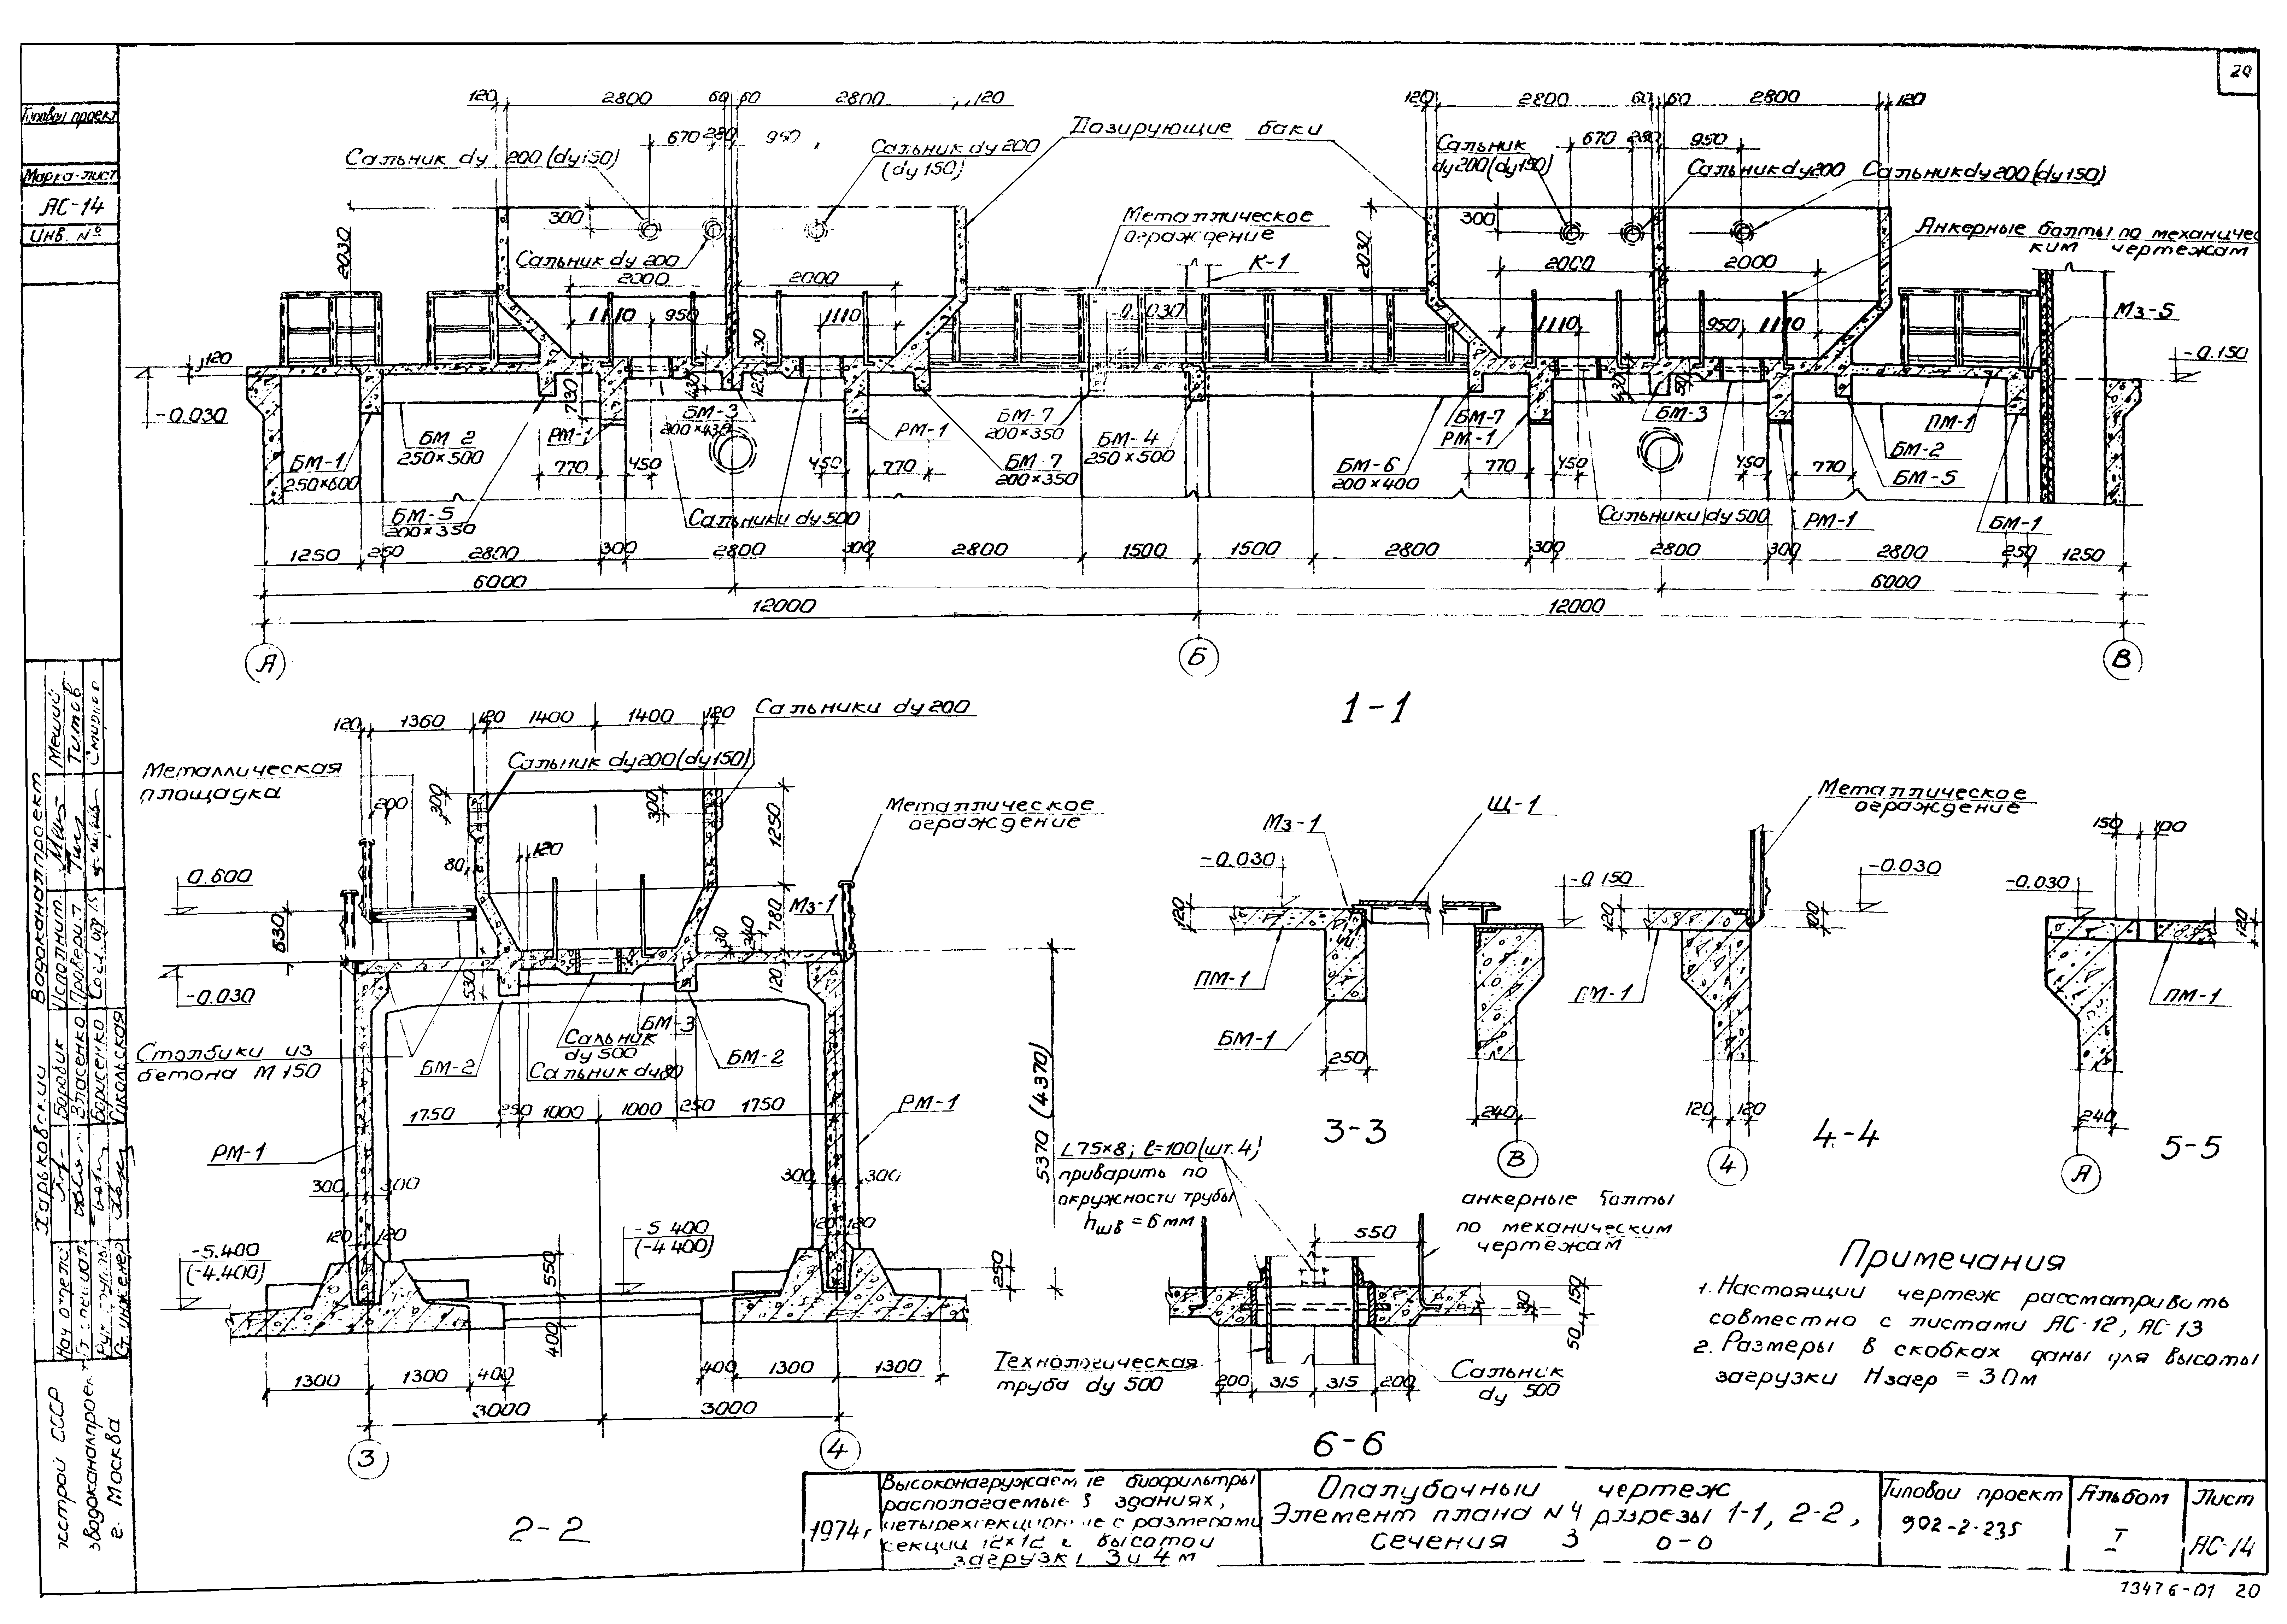 20
Типовой проект
Марка-лист
АС-14
Инв. №
120 2800 60 60 2800 120
120 2800 60 60 2800 120
Дозирующие баки
670 280 950
670 280 950
Сальник dy 200 (dy 150)
Сальник dy 200
(dy 150)
Сальник
dy 200 (dy 150)
Сальник dy 200
Сальник dy 200 (dy 150)
300
2030
Сальник dy 200
Металлическое
ограждение
К-1
300
2030
Анкерные болты по механичес
ким чертежам
2000 2000
2000 2000
1110 950 1110
-0.030
1110 950 1110
Мз-5
120
-0.030
-0.150
730 430 120 30
БМ-1
250×600
БМ-2
250×500
БМ-5
200×350
РМ-1
БМ-3
200×430
РМ-1
БМ-7
200×350
БМ-7
200×350
БМ-4
250×500
БМ-6
200×400
БМ-7
РМ-1
БМ-3
ПМ-1
БМ-2
БМ-5
РМ-1
БМ-1
770 450 450 770
770 450 450 770
Сальники dy 500
Сальники dy 500
1250 250 2800 300 2800 300 2800 1500 1500 2800 300 2800 300 2800 250 1250
6000 6000
12000 12000
А Б В
1-1
120 1360 120 1400 1400 120
Сальники dy 200
Сальник dy 200 (dy 150)
Металлическая
площадка
200
300 300
1250
Металлическое
ограждение
80 120
0.600
630
-0.030
Мз-1
780
30 340
120
530
Столбики из
бетона М 150
БМ-2
БМ-3
Сальник
dy 500
Сальник dy 80
БМ-2
1750 250 1000 1000 250 1750
РМ-1
РМ-1
5370 (4370)
300 300 300 300
120 120 120 120
-5.400
(-4.400)
-5.400
(-4.400)
550
400
250
1300 1300 400 400 1300 1300
3000 3000
3 4
2-2
Мз-1
Щ-1
-0.030
-0.150
120
ПМ-1
БМ-1
250
240
В
3-3
Металлическое
ограждение
-0.030
120
100
ПМ-1
120 120
4
4-4
150 100
-0.030
120
ПМ-1
240
А
5-5
L75×8; ℓ=100 (шт. 4)
приварить по
окружности трубы
hшв = 6 мм
анкерные болты
по механическим
чертежам
550
150
30
50
Технологическая
труба dy 500
200 315 315 200
Сальник
dy 500
6-6
Примечания
1. Настоящий чертеж рассматривать
совместно с листами АС-12, АС-13
2. Размеры в скобках даны для высоты
загрузки Нзагр = 3.0м
Харьковский Водоканалпроект
Нач. отдела Боровик
Гл. специал. Власенко
Рук. группы Борисенко
Ст. инженер Сикольская
Исполнит. Меший
Проверил Титов
г. Москва
1974г
Высоконагружаемые биофильтры
располагаемые в зданиях,
четырехсекционные с размерами
секции 12×12 и высотой
загрузки 3 и 4 м
Опалубочный чертеж
Элемент плана N 4 разрезы 1-1, 2-2,
Сечения 3
Типовой проект
902-2-235
Альбом
I
Лист
АС-14
13476-01 20